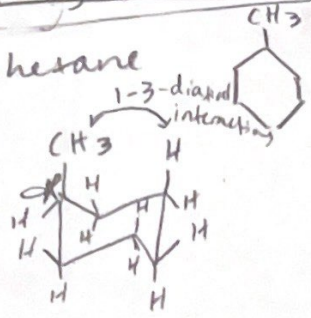 CH3
hexane
1-3-diaxial
interaction
CH3
H
H
H
H
H
H
H
H
H
H
H